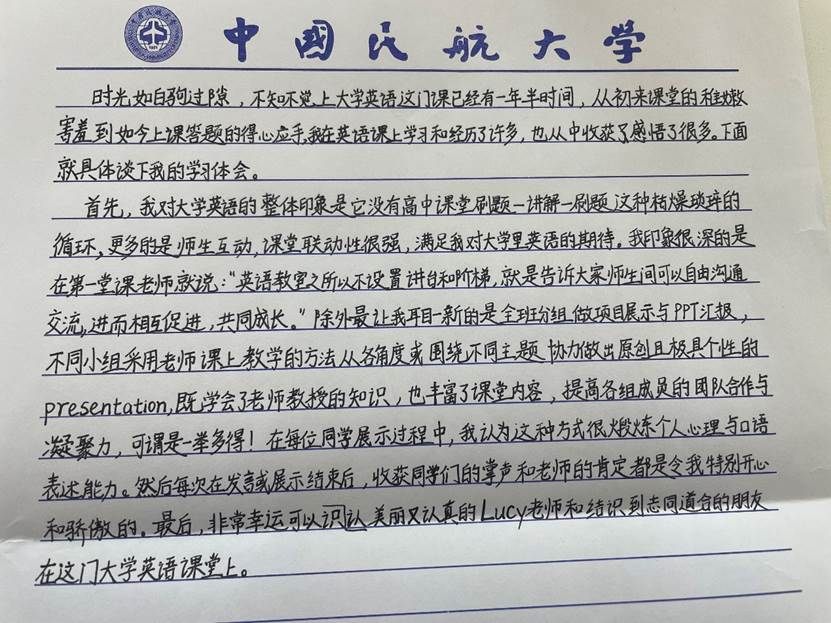 中国民航大学
时光如白驹过隙，不知不觉上大学英语这门课已经有一年半时间，从初来课堂的稚嫩
害羞到如今上课答题的得心应手，我在英语课上学习和经历了许多，也从中收获了感悟了很多。下面
就具体谈下我的学习体会。
首先，我对大学英语的整体印象是它没有高中课堂刷题—讲解—刷题这种枯燥琐碎的
循环，更多的是师生互动，课堂联动性很强，满足我对大学里英语的期待。我印象很深的是
在第一堂课老师就说：“英语教室之所以不设置讲台和阶梯，就是告诉大家师生间可以自由沟通
交流，进而相互促进，共同成长。”除外最让我耳目一新的是全班分组做项目展示与PPT汇报，
不同小组采用老师课上教学的方法从各角度或围绕不同主题协力做出原创且极具个性的
presentation，既学会了老师教授的知识，也丰富了课堂内容，提高各组成员的团队合作与
凝聚力，可谓是一举多得！在每位同学展示过程中，我认为这种方式很煅炼个人心理与口语
表述能力。然后每次在发言或展示结束后，收获同学们的掌声和老师的肯定都是令我特别开心
和骄傲的。最后，非常幸运可以识认美丽又认真的Lucy老师和结识到志同道合的朋友
在这门大学英语课堂上。